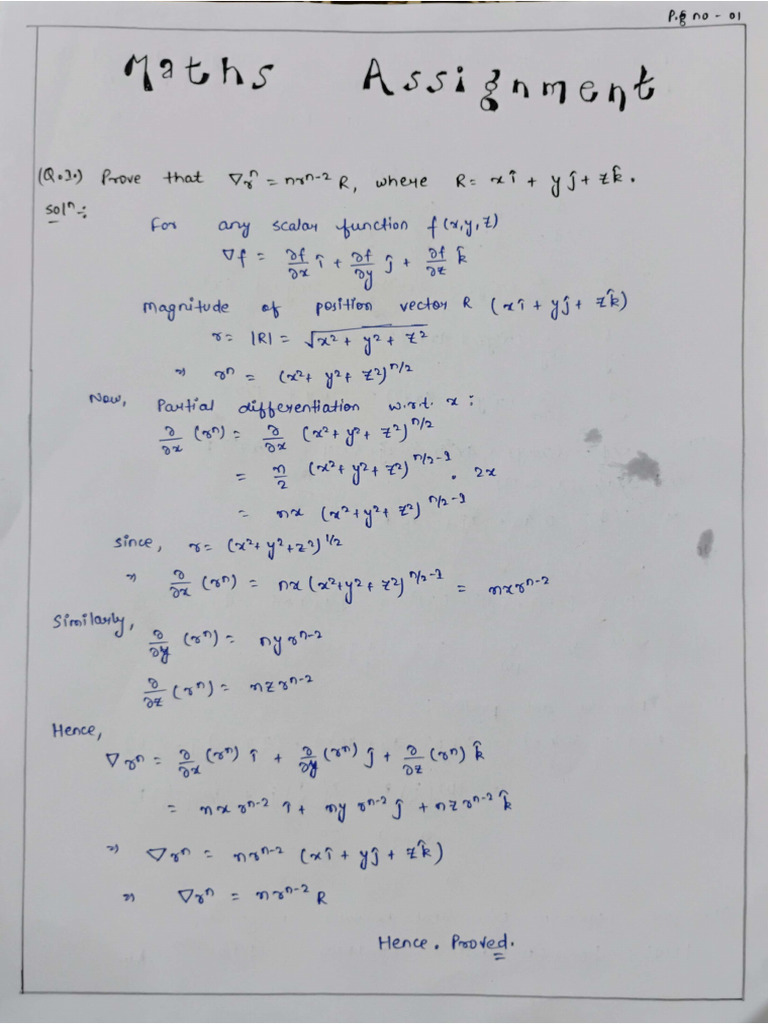 P.g no - 01
Maths Assignment
(Q.1.) Prove that ∇rⁿ = nrⁿ⁻² R, where R = xî + yĵ + zk̂.
Solⁿ:-
For any scalar function f(x,y,z)
∇f = ∂f/∂x î + ∂f/∂y ĵ + ∂f/∂z k̂
Magnitude of position vector R (xî + yĵ + zk̂)
r = |R| = √(x² + y² + z²)
⇒ rⁿ = (x² + y² + z²)^(n/2)
Now, Partial differentiation w.r.t. x :
∂/∂x (rⁿ) = ∂/∂x (x² + y² + z²)^(n/2)
= n/2 (x² + y² + z²)^(n/2-1) . 2x
= nx (x² + y² + z²)^(n/2-1)
Since, r = (x² + y² + z²)^(1/2)
⇒ ∂/∂x (rⁿ) = nx (x² + y² + z²)^(n/2-1) = nxrⁿ⁻²
Similarly,
∂/∂y (rⁿ) = nyrⁿ⁻²
∂/∂z (rⁿ) = nzrⁿ⁻²
Hence,
∇rⁿ = ∂/∂x (rⁿ) î + ∂/∂y (rⁿ) ĵ + ∂/∂z (rⁿ) k̂
= nxrⁿ⁻² î + nyrⁿ⁻² ĵ + nzrⁿ⁻² k̂
⇒ ∇rⁿ = nrⁿ⁻² (xî + yĵ + zk̂)
⇒ ∇rⁿ = nrⁿ⁻² R
Hence. Proved.